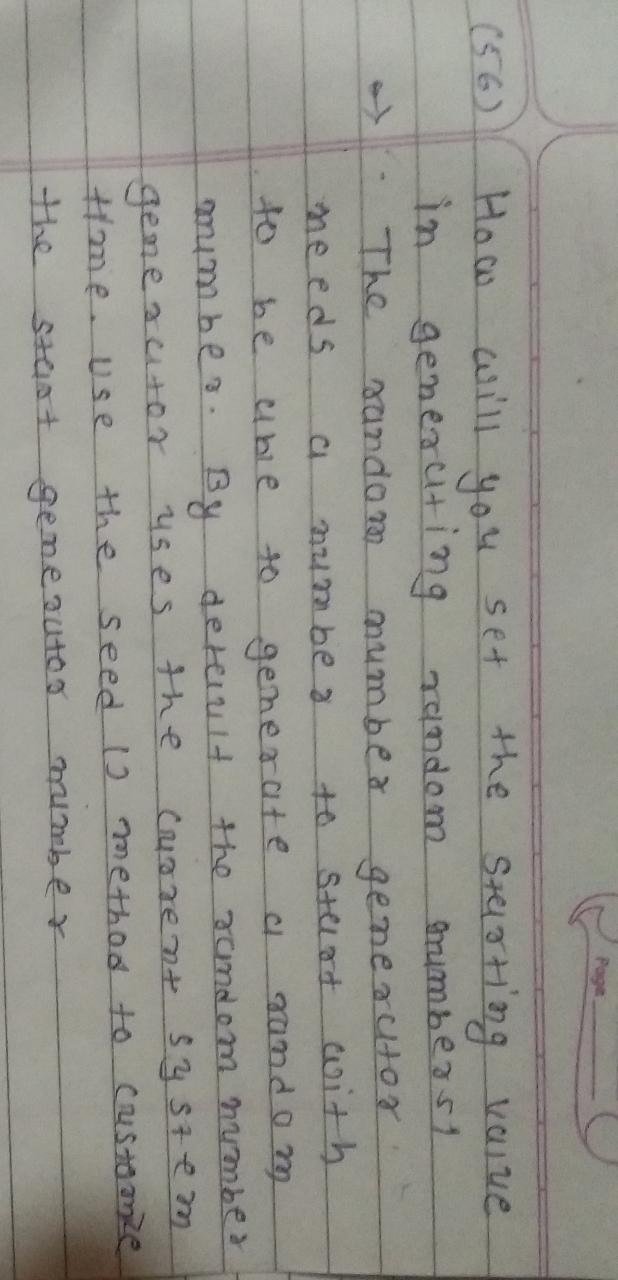 Page
(56) How will you set the starting value
in generating random numbers?
→ · The random number generator
needs a number to start with
to be able to generate a random
number. By default the random number
generator uses the current system
time. Use the seed () method to customize
the start generator number